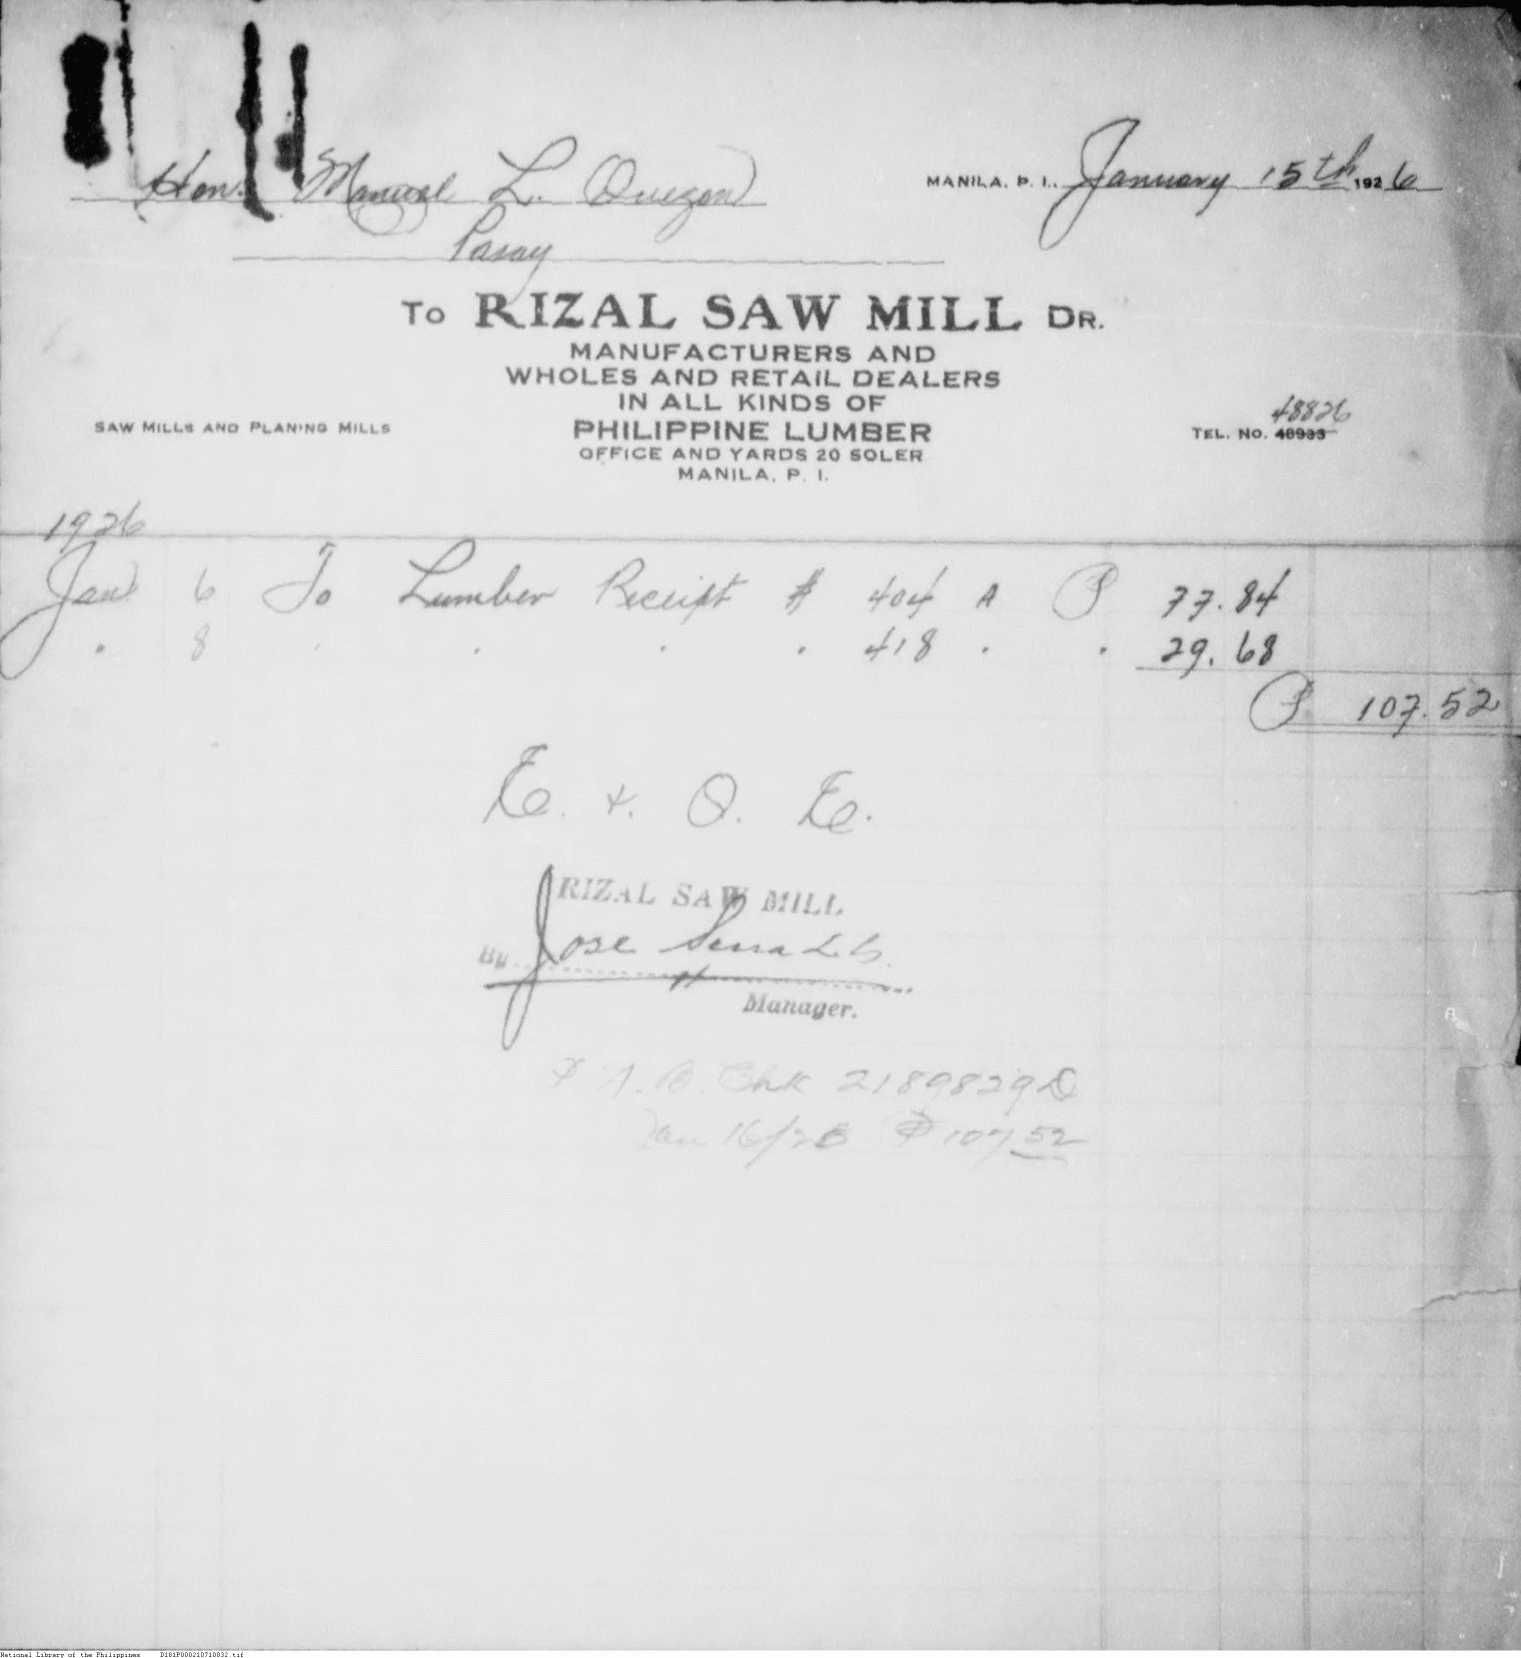 Hon. Manuel L. Quezon
MANILA, P. I., January 15th, 1926
Pasay
TO RIZAL SAW MILL DR.
MANUFACTURERS AND
WHOLES AND RETAIL DEALERS
IN ALL KINDS OF
PHILIPPINE LUMBER
OFFICE AND YARDS 20 SOLER
MANILA, P. I.
SAW MILLS AND PLANING MILLS
48826
TEL. NO. 48933
1926
Jan 6 To Lumber Receipt # 404 A ₱ 77.84
" 8 " " " " 418 " " 29.68
₱ 107.52
E. & O. E.
RIZAL SAW MILL
By Jose Serra
Manager.
Chk 2189829D
Jan 16/26 ₱ 107.52
National Library of the Philippines D181P000210710832.tif